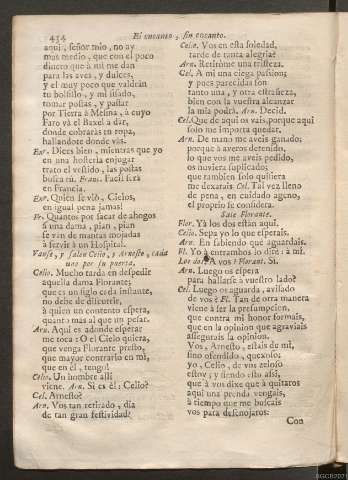 434 El encanto, sin encanto.
aqui, señor mio, no ay
mas medio, que con el poco
dinero que à mi me dan
para las aves, y dulces,
y el muy poco que valdràn
tu bolsillo, y mi
tomar postas, y passar
por Tierra à Mesina, à cuyo
Faro và el Baxel à dar,
donde cobraràs tu ropa,
hallandote donde vàs.
Enr. Dices bien, mientras que yo
en una hosteria enjugar
trato el vestido, las postas
busca tu. Franc. Facil serà
en Francia.
Enr. Quien se viò, Cielos,
en igual pena jamàs!
Fr. Quantos por sacar de ahogos
à una dama, pian, pian
se vàn de mantas mojadas
à servir à un Hospital.
Vanse, y salen Celio, y Arnesto, cada
uno por su puerta.
Celio. Mucho tarda en despedir
aquella dama Florante;
que es un siglo cada instante,
no debe de discurrir,
à quien un contento espera,
quanto mas al que un pesar.
Arn. Aqui es adonde esperar
me toca: O el Cielo quiera,
que venga Florante presto,
que mayor contrario en mi,
que en èl, tengo!
Celio. Un hombre alli
viene. Arn. Si es èl: Celio?
Cel. Arnesto?
Arn. Vos tan retirado, dia
de tan gran festividad?
Celio. Vos en esta soledad,
tarde de tanta alegria?
Arn. Retiròme una tristeza.
Cel. A mi una ciega passion;
y pues parecidas son
tanto una, y otra estrañeza,
bien con la vuestra alcanzar
la mia podrà. Arn. Decid.
Cel. Que de aqui os vais, porque aqui
solo me importa quedar.
Arn. De mano me aveis ganado;
porque à averos detenido,
lo que vos me aveis pedido,
os huviera suplicado;
que tambien solo quisiera
me dexarais. Cel. Tal vez lleno
de pena, en cuidado ageno,
el proprio se considera.
Sale Florante.
Flor. Yà los dos estàn aqui.
Celio. Sepa yo lo que esperais.
Arn. En sabiendo què aguardais.
Fl. Yo à entrambos lo dirè: à mi.
Los dos. A vos? Florant. Si.
Arn. Luego os espera
para hallarse à vuestro lado?
Cel. Luego os aguarda, avisado
de vos? Fl. Tan de otra manera
viene à ser la presumpcion,
que contra mi honor formais,
que en la opinion que agraviais
assegurais la opinion.
Vos, Arnesto, estais de mi,
sino ofendido, quexoso;
yo, Celio, de vos zeloso
estoy; y siendo esto assi,
que à vos dixe que à quitaros
aqui una prenda vengais,
à tiempo que me buscais
vos para desenojaros:
Con